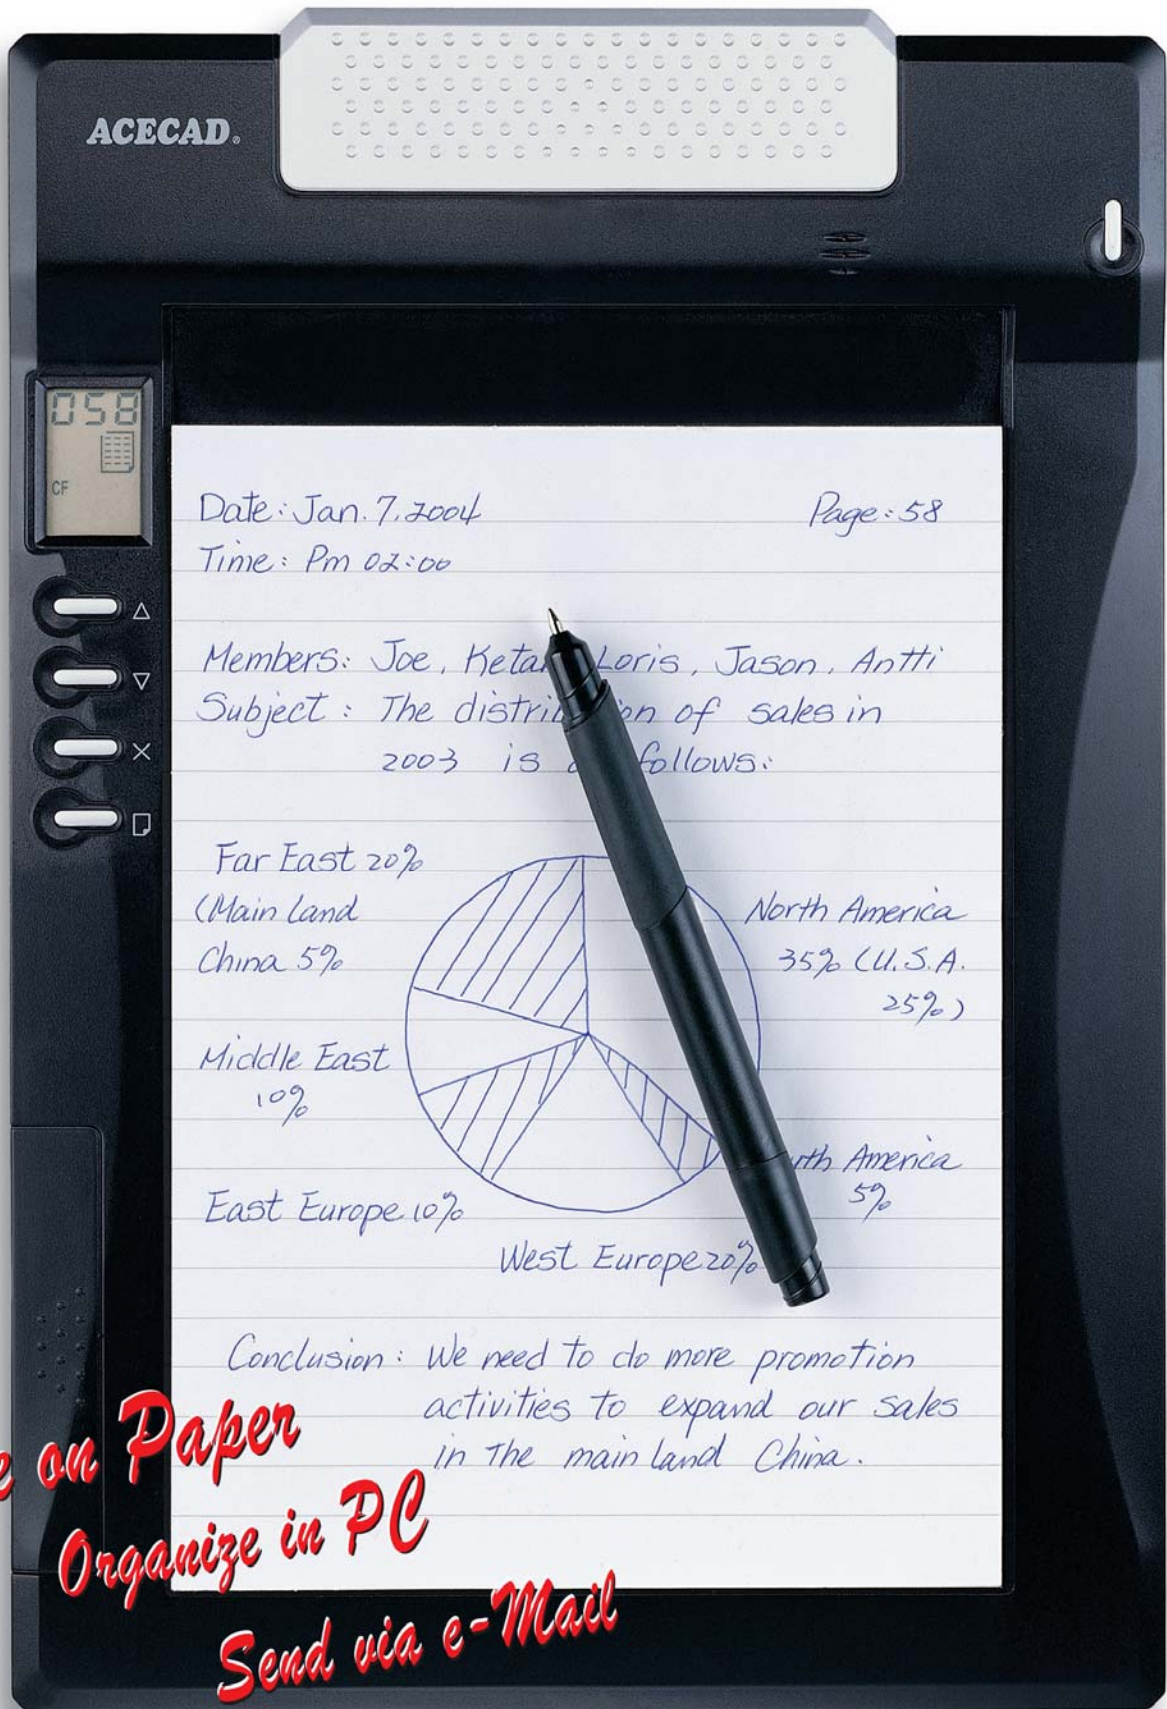 ACECAD
058
CF
Date: Jan. 7. 2004 Page: 58
Time: Pm 02:00
Members: Joe, Loris, Jason, Antti
Subject: The of sales in
2003 is follows:
Far East 20%
(Main Land
China 5%
North America
35% (U.S.A.
25%)
Middle East
10%
America
5%
East Europe 10%
West Europe 20%
Conclusion: We need to do more promotion
activities to expand our sales
in the main land China.
on Paper
Organize in PC
Send via e-Mail